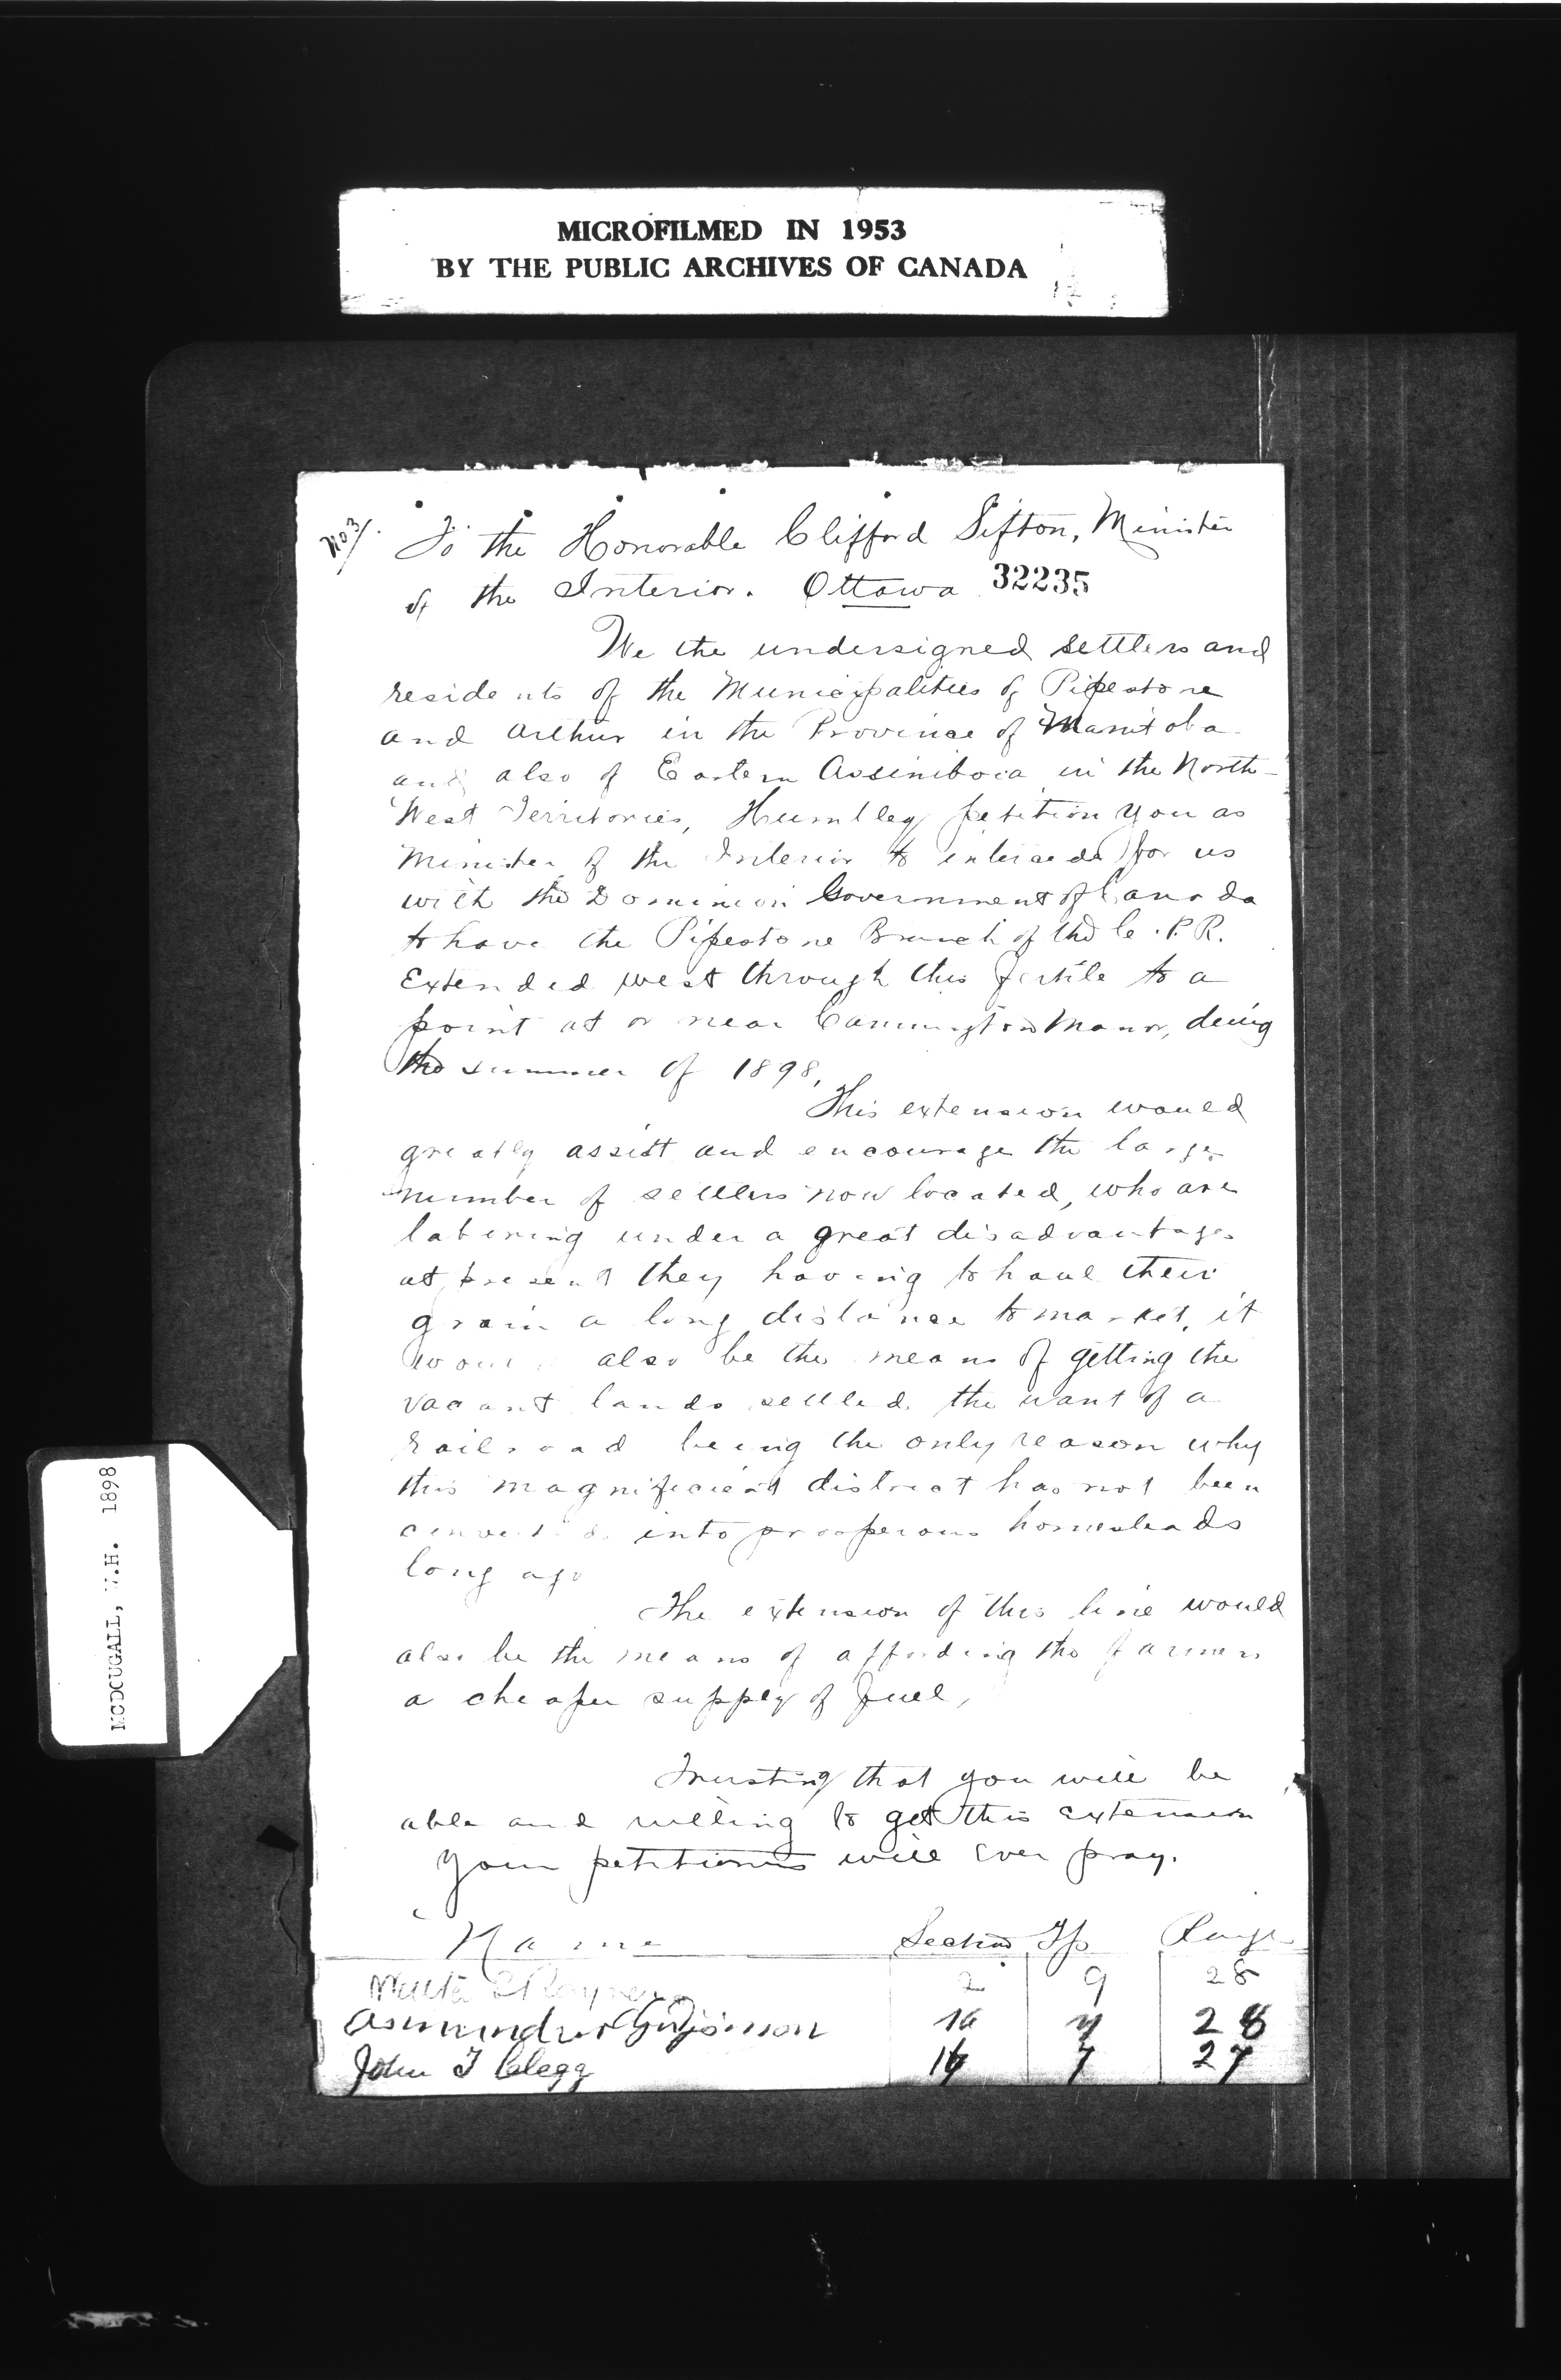 MICROFILMED IN 1953
BY THE PUBLIC ARCHIVES OF CANADA
No 3/.
To the Honorable Clifford Sifton, Minister
of the Interior. Ottawa 32235
We the undersigned settlers and
residents of the Municipalities of Pipestone
and Arthur in the Province of Manitoba
and also of Eastern Assiniboia in the North-
West Territories, Humbley petition you as
Minister of the Interior to intercede for us
with the Dominion Government of Canada
to have the Pipestone Branch of the C.P.R.
Extended west through this fertile to a
point at or near Cannington Manor, during
the summer of 1898,
This extension would
greatly assist and encourage the large
number of settlers now located, who are
labering under a great disadvantage
at present they having to haul their
grain a long distance to market, it
would also be the means of getting the
vacant lands settled, the want of a
railroad being the only reason why
this magnificient district has not been
converted into prosperous homesteads
long ago
The extension of this line would
also be the means of affording the farmers
a cheaper supply of fuel,
Trusting that you will be
able and willing to get this extension
your petitioners will ever pray.
Name Section Tp Range
2 9 28
Asmundur 16 28
John T Clegg 16 7 27
MCDOUGALL, W.H. 1898